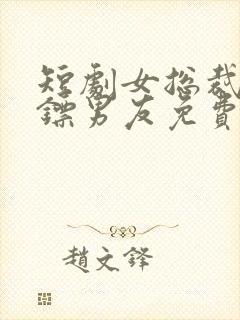 短劇女總裁
鏢男友免費
趙文鋒